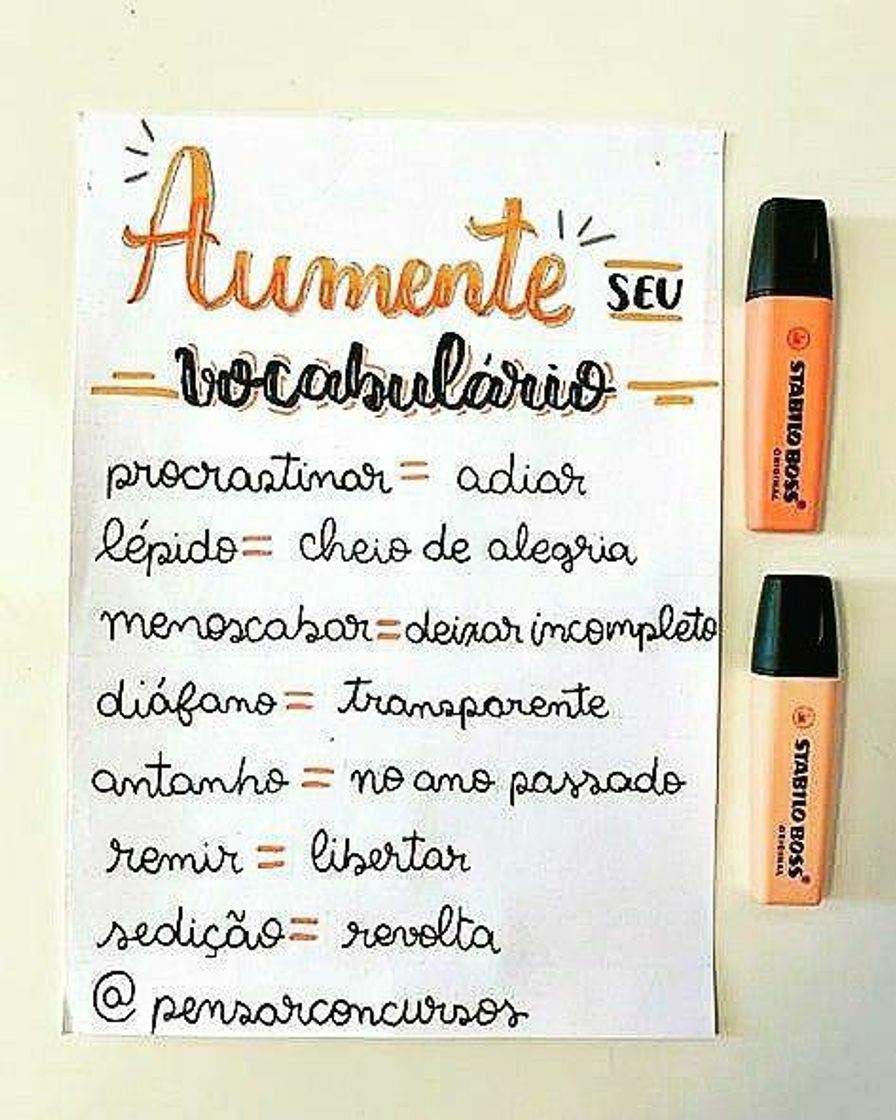 Aumente SEU
vocabulário
procrastinar = adiar
lépido = cheio de alegria
menoscabar = deixar incompleto
diáfano = transparente
antanho = no ano passado
remir = libertar
sedição = revolta
@pensarconcursos
STABILO BOSS®
ORIGINAL
STABILO BOSS®
ORIGINAL